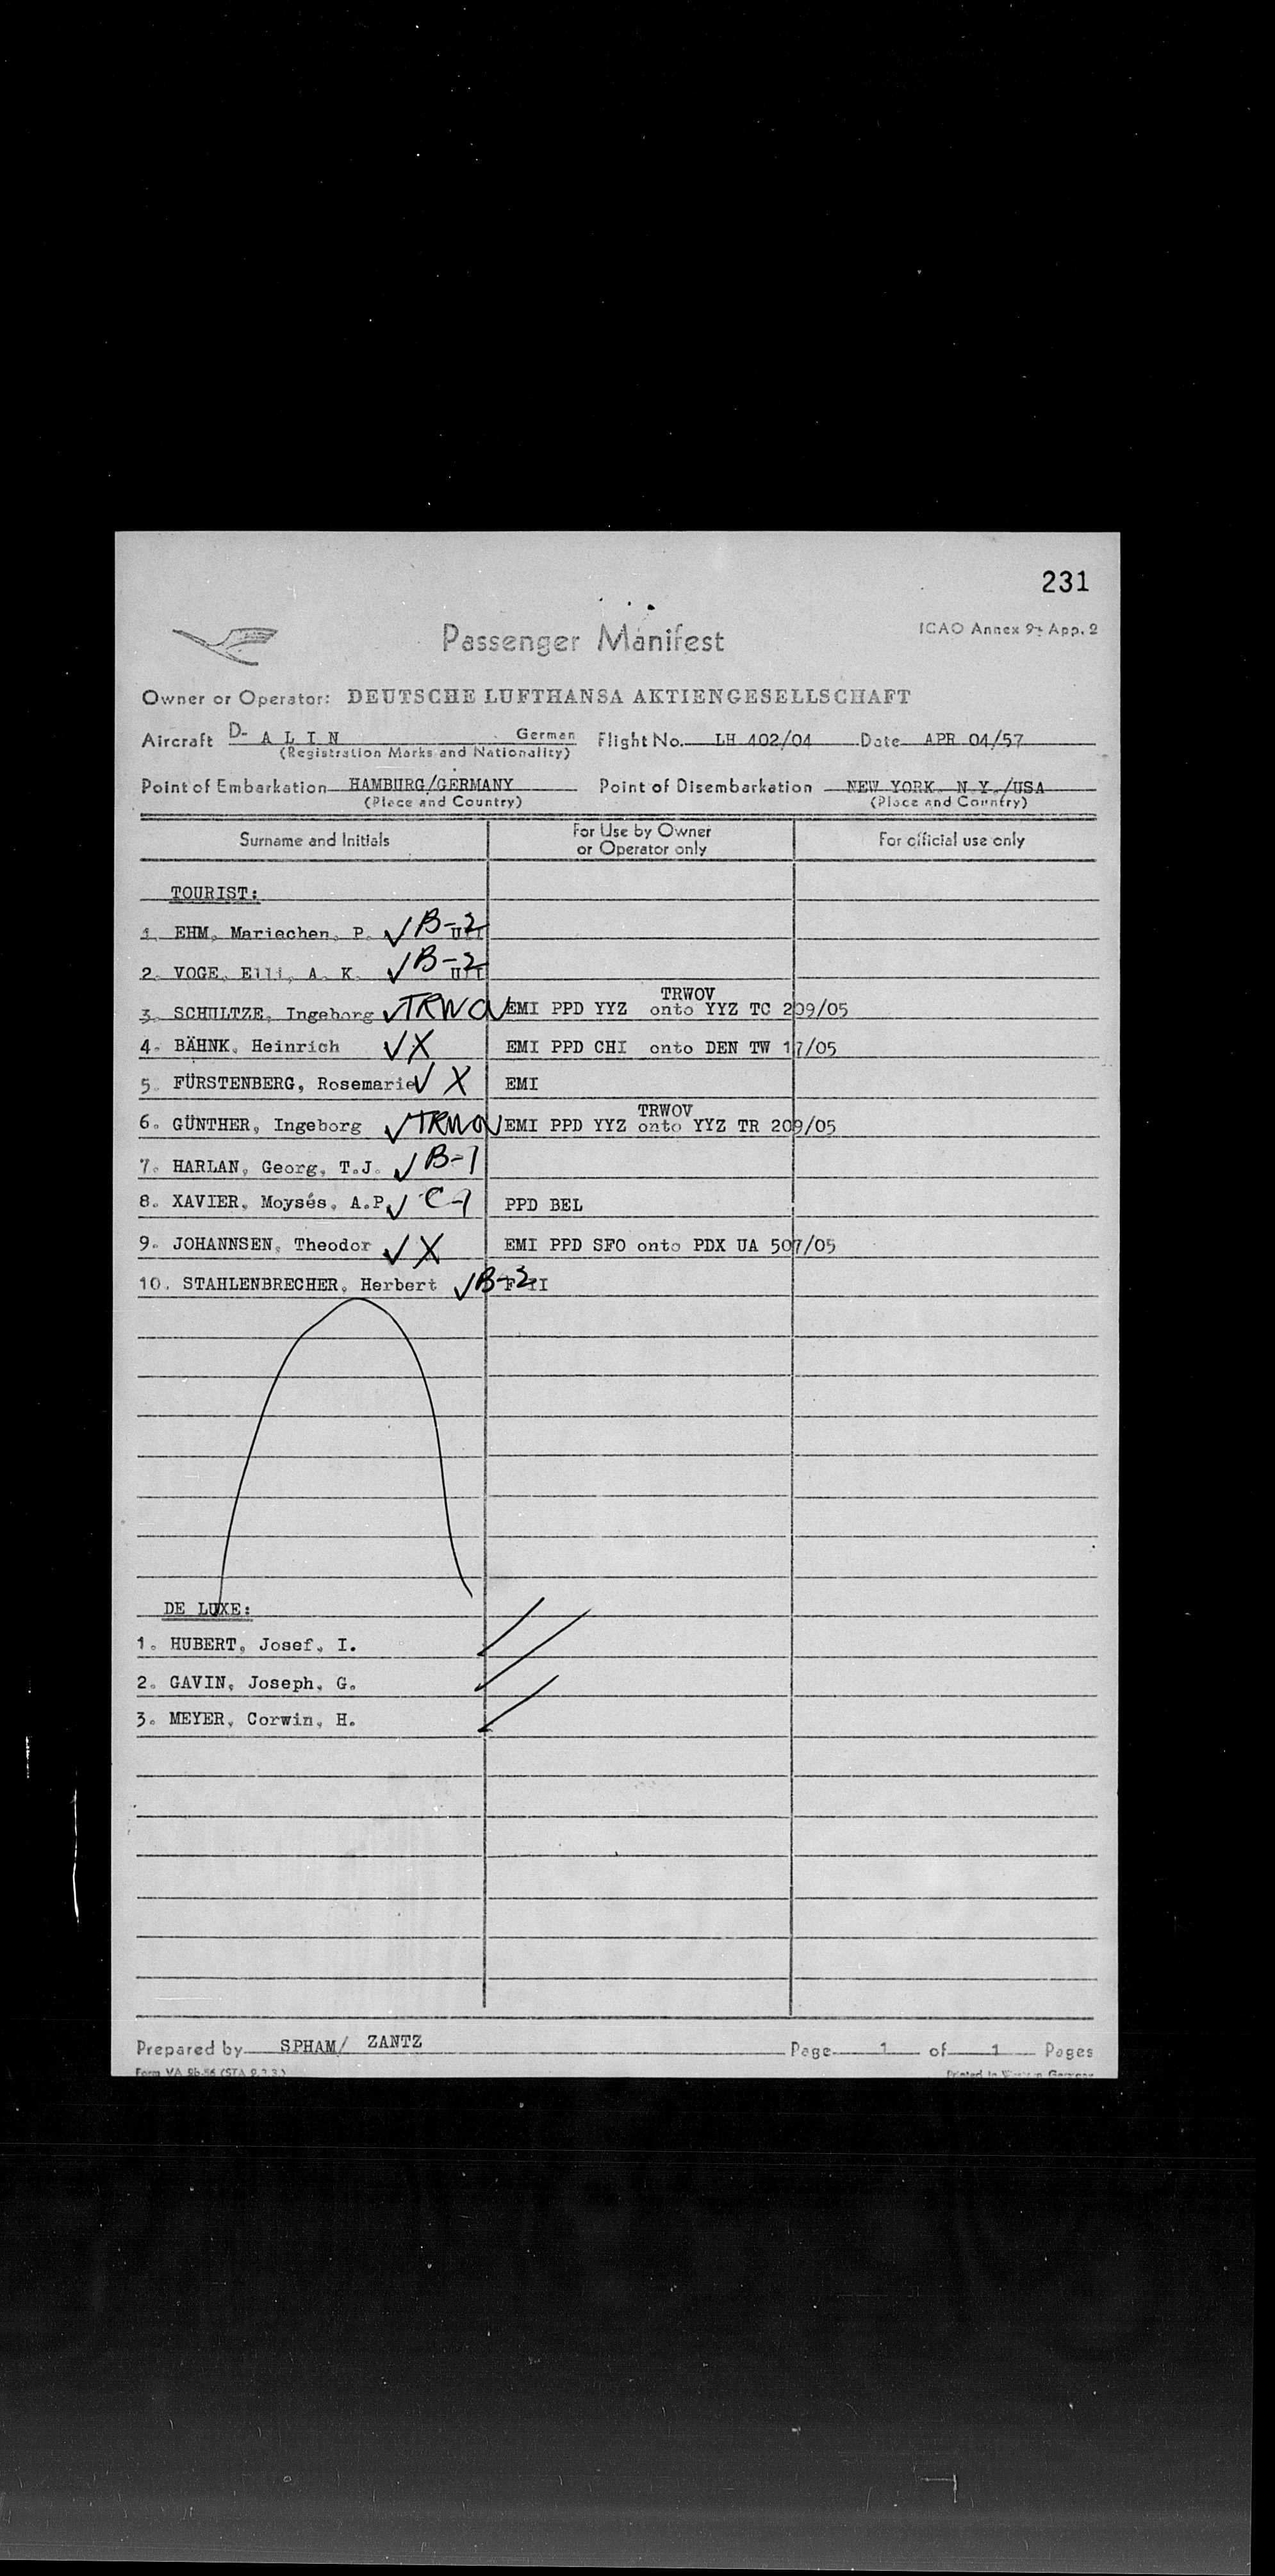 231
Passenger Manifest
ICAO Annex 9, App. 2
Owner or Operator: DEUTSCHE LUFTHANSA AKTIENGESELLSCHAFT
Aircraft D- A L I N German Flight No. LH 402/04 Date APR 04/57
(Registration Marks and Nationality)
Point of Embarkation HAMBURG/GERMANY Point of Disembarkation NEW YORK N.Y./USA
(Place and Country) (Place and Country)
Surname and Initials For Use by Owner or Operator only For official use only
TOURIST:
1. EHM, Mariechen, P. ✓ B-2
2. VOGE, Elli, A. K. ✓ B-2
TRWOV
3. SCHULTZE, Ingeborg ✓ TRWOV EMI PPD YYZ onto YYZ TC 209/05
4. BÄHNK, Heinrich ✓ X EMI PPD CHI onto DEN TW 17/05
5. FÜRSTENBERG, Rosemarie ✓ X EMI
TRWOV
6. GÜNTHER, Ingeborg ✓ TRWOV EMI PPD YYZ onto YYZ TR 209/05
7. HARLAN, Georg, T.J. ✓ B-1
8. XAVIER, Moysés, A.P. ✓ C-1 PPD BEL
9. JOHANNSEN, Theodor ✓ X EMI PPD SFO onto PDX UA 507/05
10. STAHLENBRECHER, Herbert ✓ B-2
DE LUXE:
1. HUBERT, Josef, I.
2. GAVIN, Joseph, G.
3. MEYER, Corwin, H.
Prepared by SPHAM/ ZANTZ Page 1 of 1 Pages
Printed in Western Germany